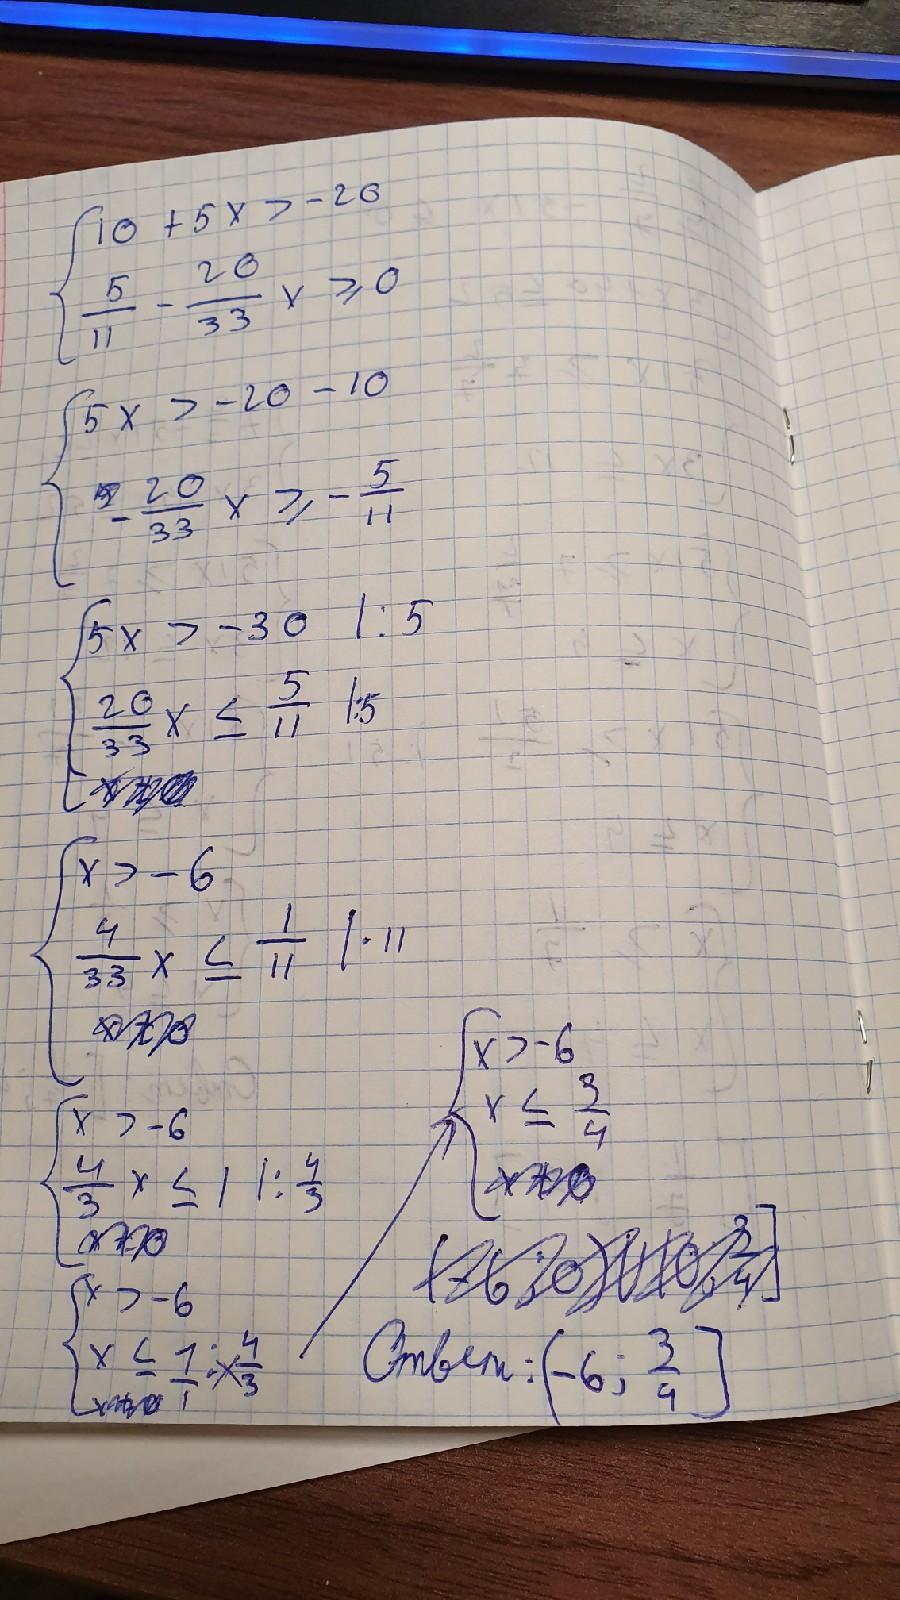 10 + 5x > -20
5/11 - 20/33 x ⩾ 0
5x > -20 - 10
- 20/33 x ⩾ - 5/11
5x > -30 |:5
20/33 x ≤ 5/11 |:5
x > -6
4/33 x ≤ 1/11 |·11
x > -6
4/3 x ≤ 1 |: 4/3
x > -6
x ≤ 1/1 : 4/3
x > -6
x ≤ 3/4
Ответ: (-6; 3/4]